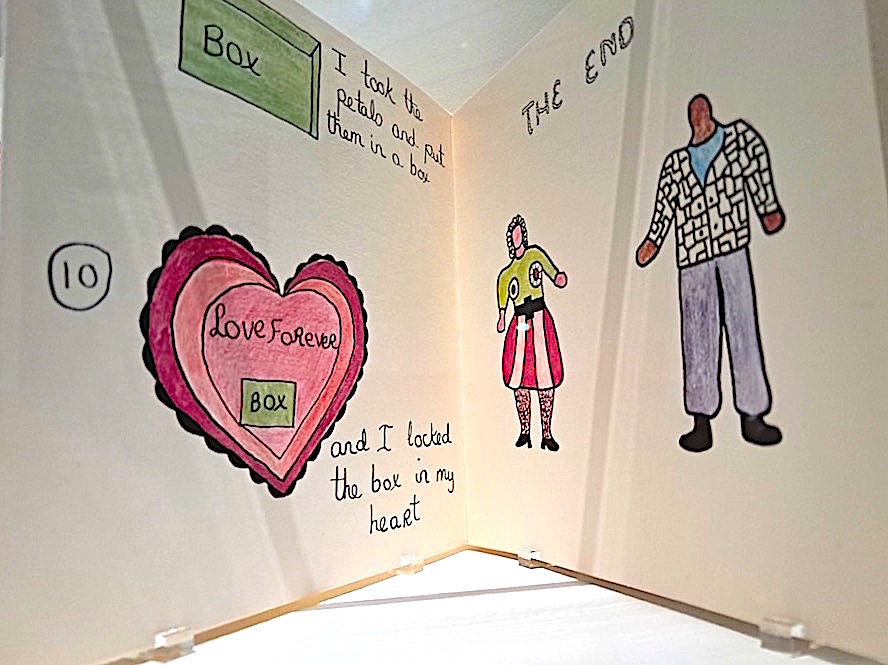 Box
I took the
petals and put
them in a box
10
Love Forever
BOX
and I locked
the box in my
heart
THE END